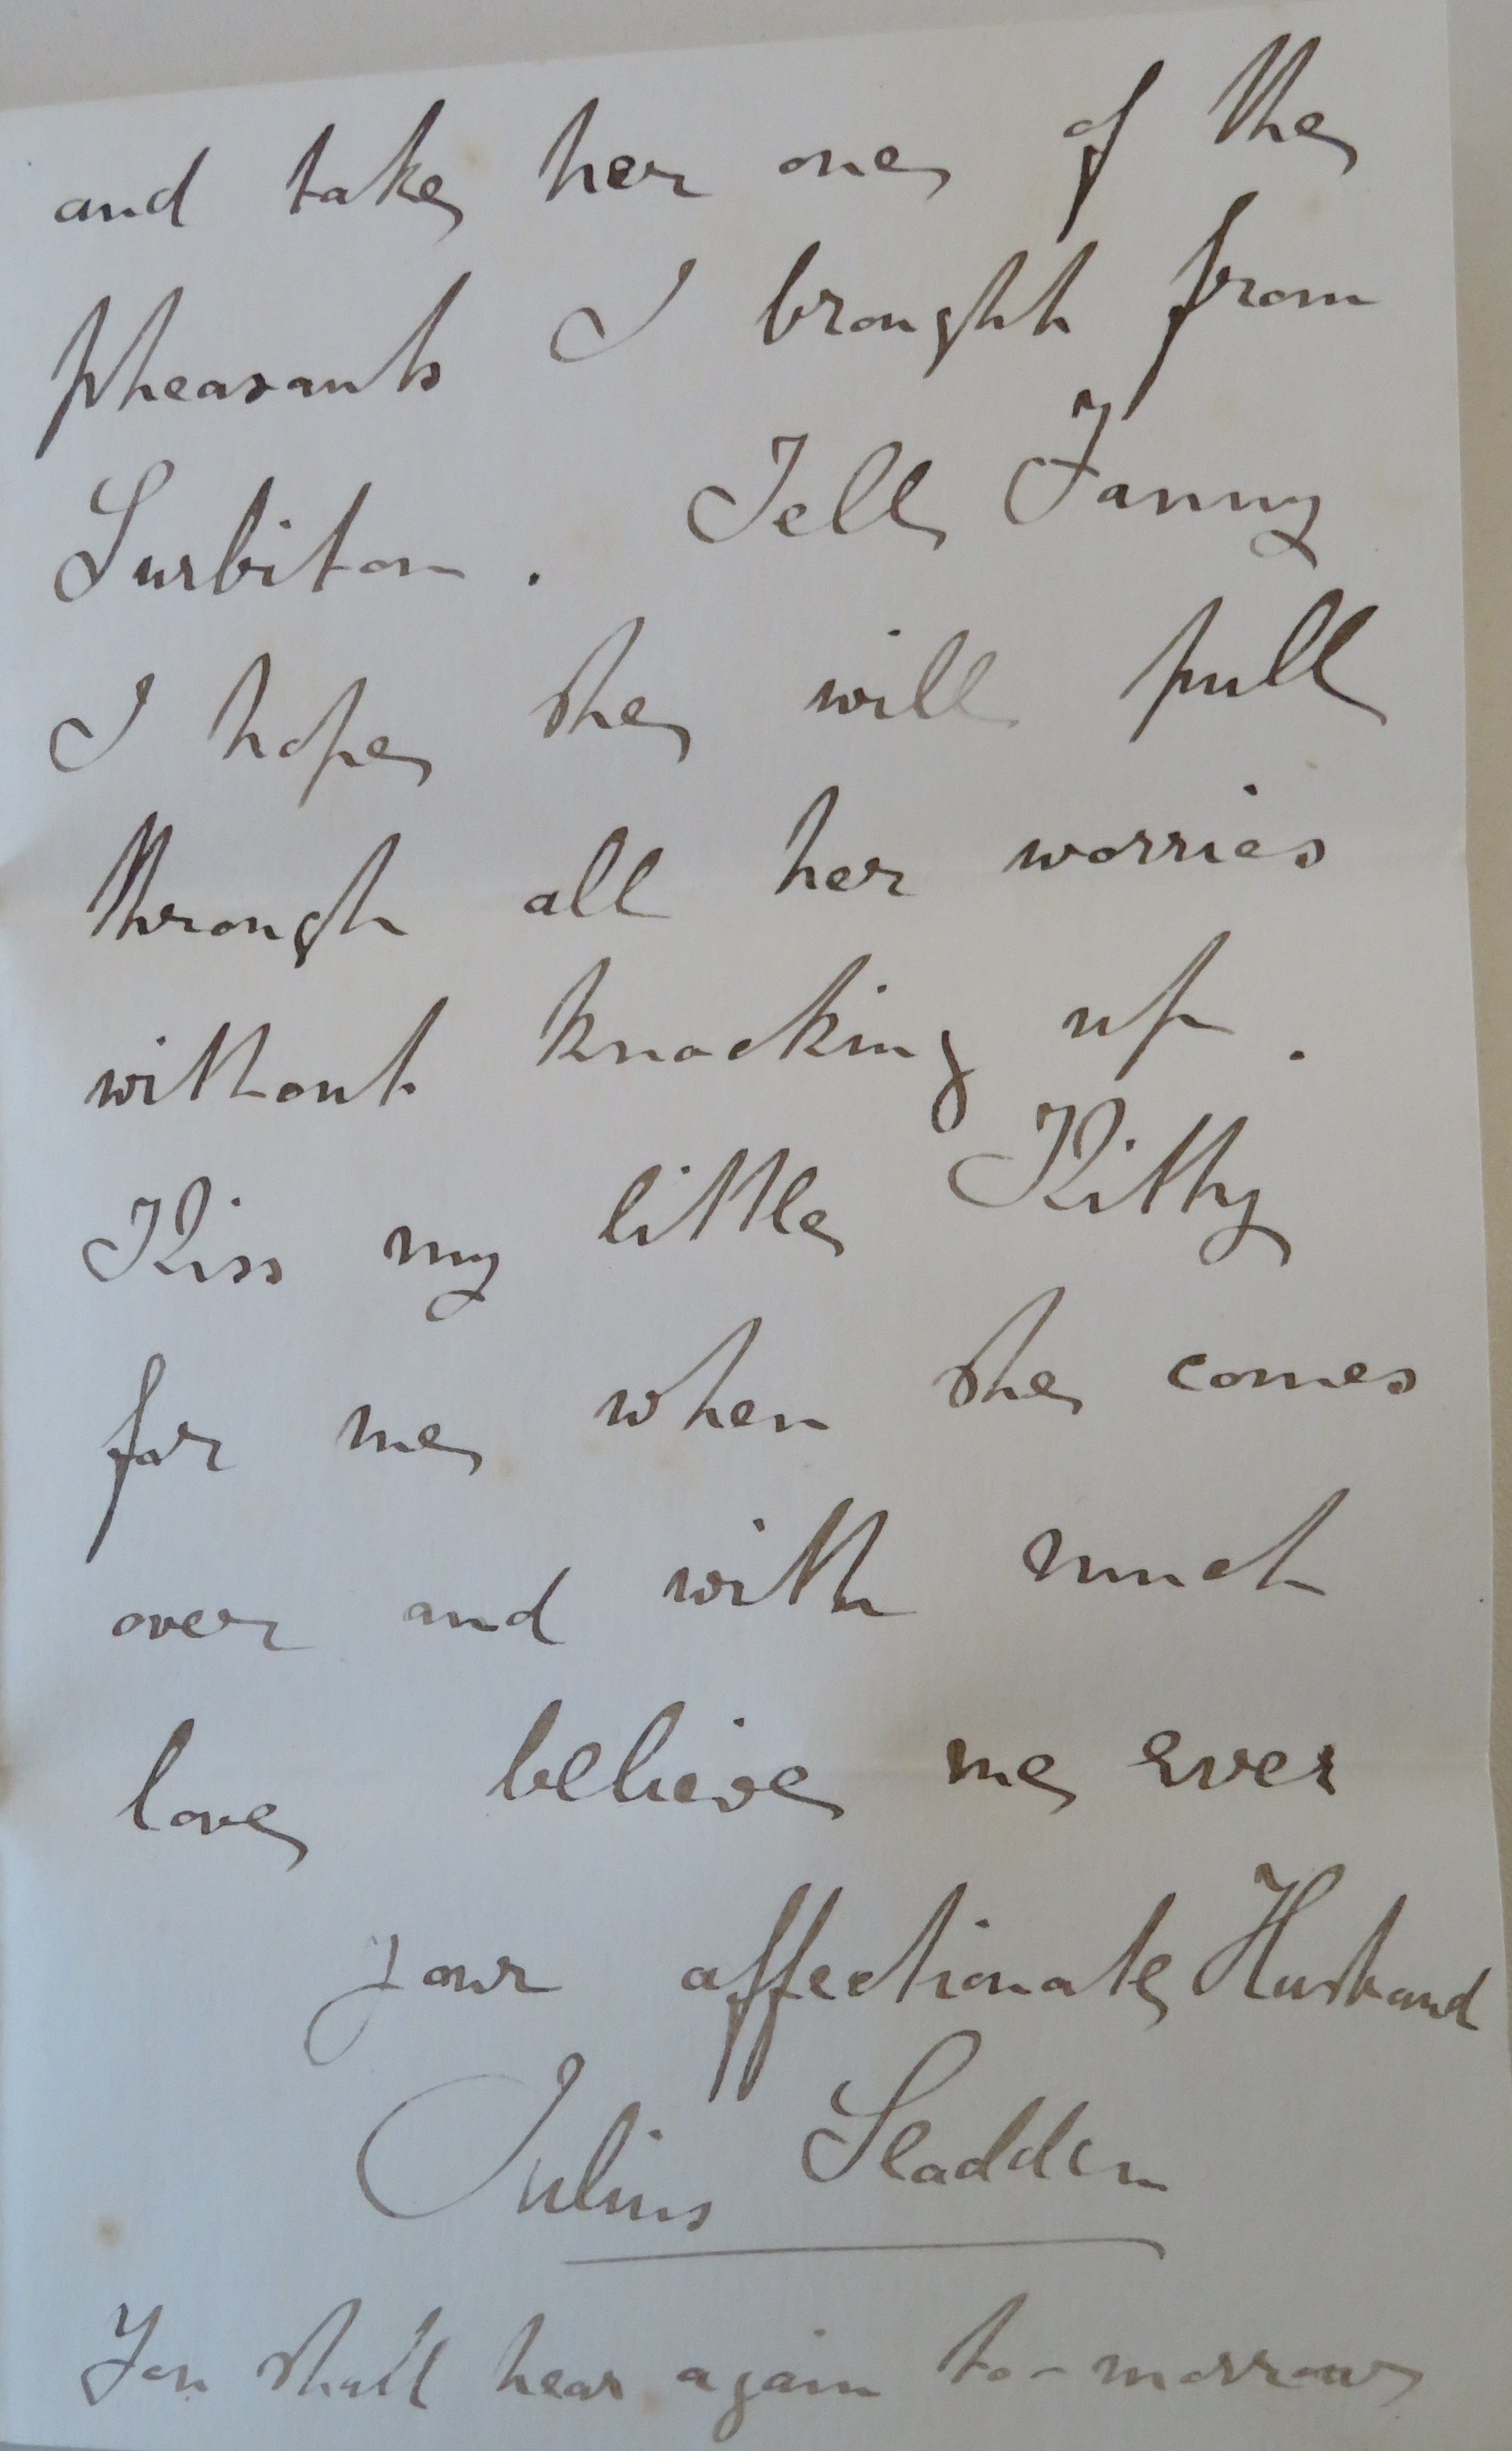 and take her one of the
pheasants I brought from
Surbiton. Tell Fanny
I hope she will pull
through all her worries
without knocking up.
Kiss my little Kitty
for me when she comes
over and with much
love believe me ever
your affectionate Husband
Julius Sladden
You shall hear again to-morrow